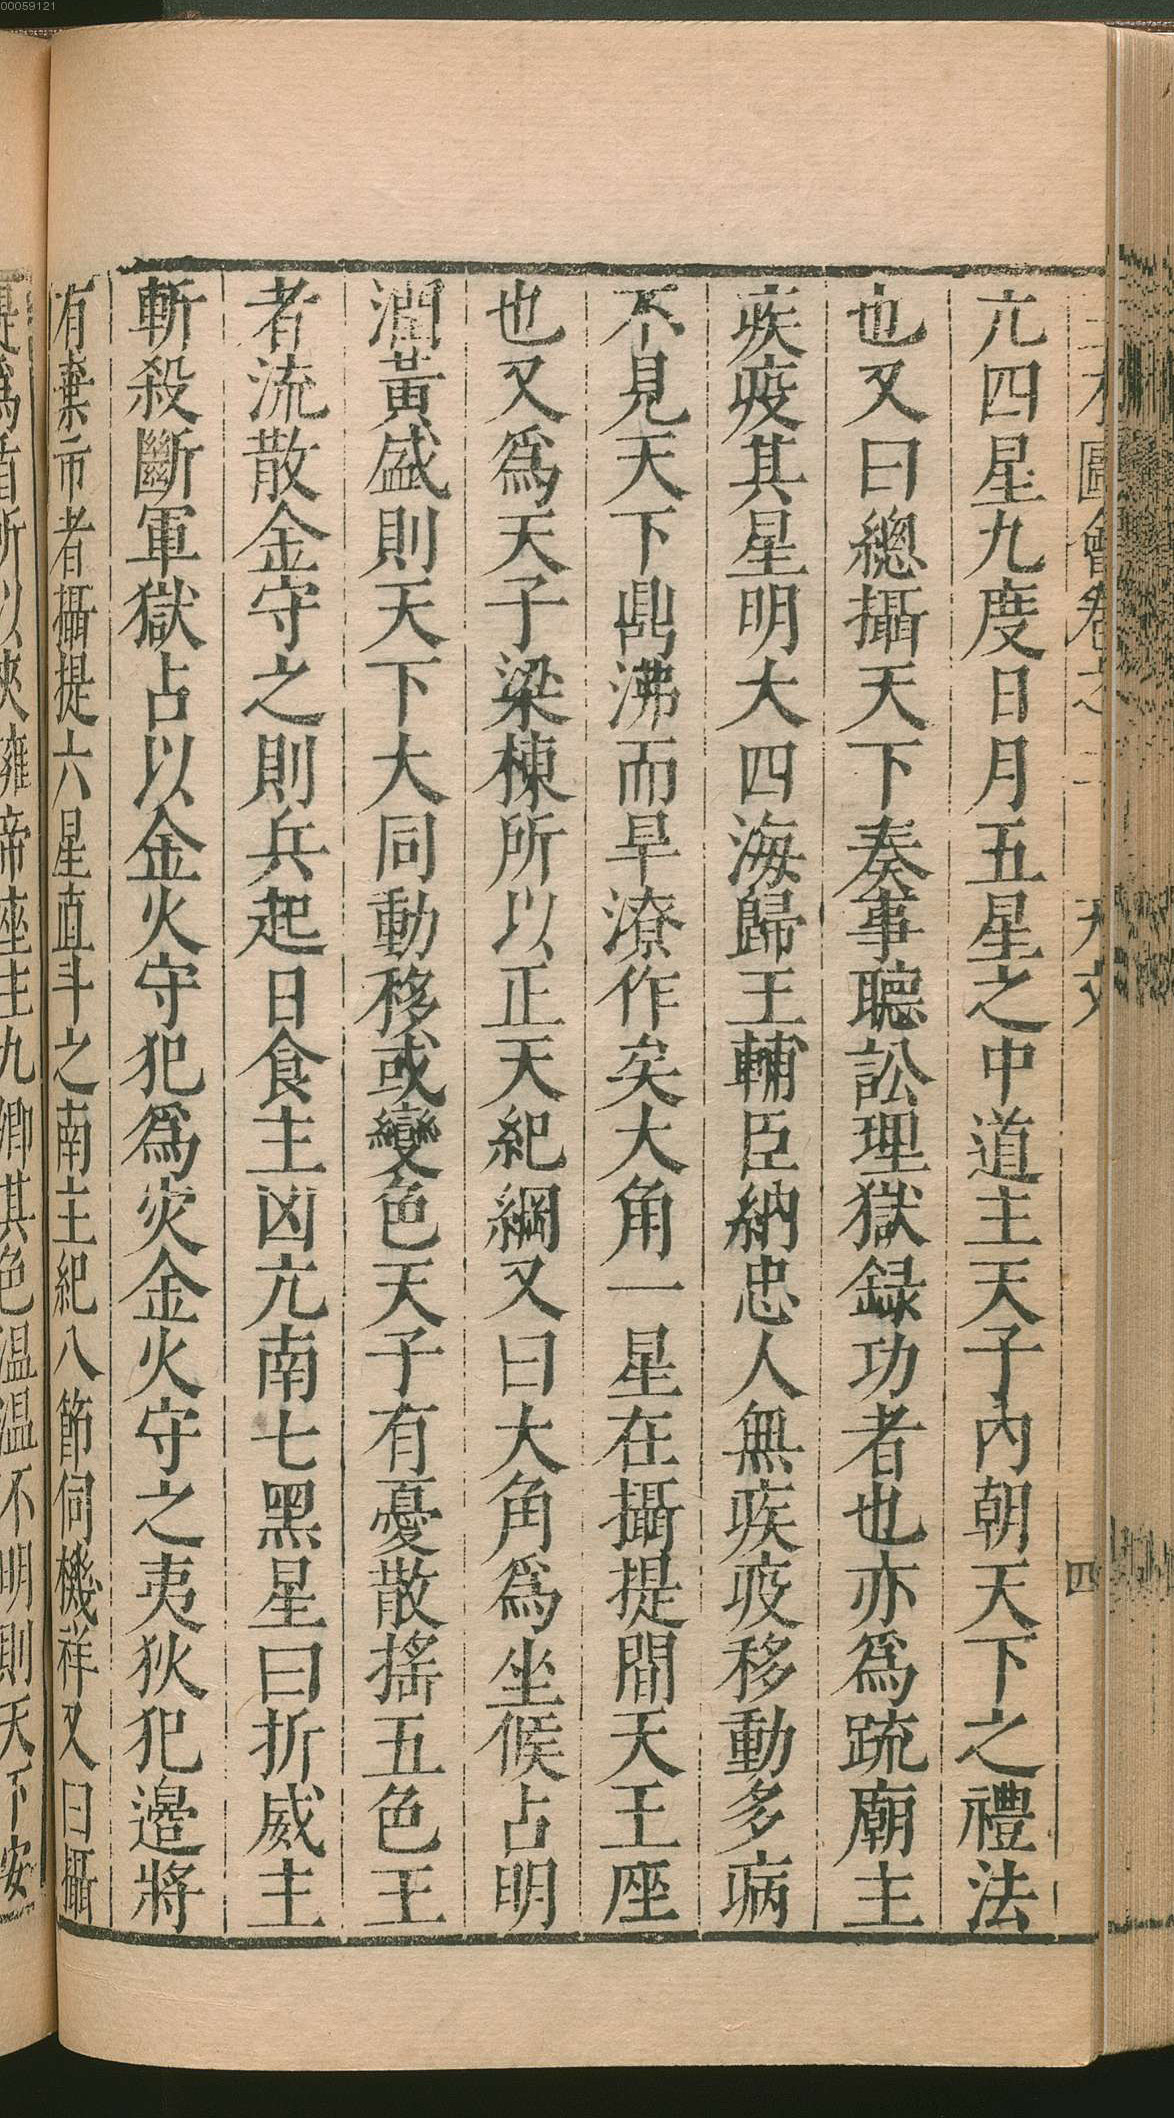 亢四星九度日月五星之中道主天子內朝天下之禮法
也又曰總攝天下奏事聽訟理獄録功者也亦爲疏廟主
疾疫其星明大四海歸王輔臣納忠人無疾疫移動多病
不見天下鼎沸而旱潦作矣大角一星在攝提間天王座
也又爲天子梁棟所以正天紀綱又曰大角爲坐候占明
潤黃盛則天下大同動移或變色天子有憂散搖五色王
者流散金守之則兵起日食主凶亢南七黑星曰折威主
斬殺斷軍獄占以金火守犯爲灾金火守之夷狄犯邉將
有棄市者攝提六星直斗之南主紀八節伺機祥又曰攝
提爲盾所以夾擁帝座主九卿其色温温不明則天下安
四
00059121